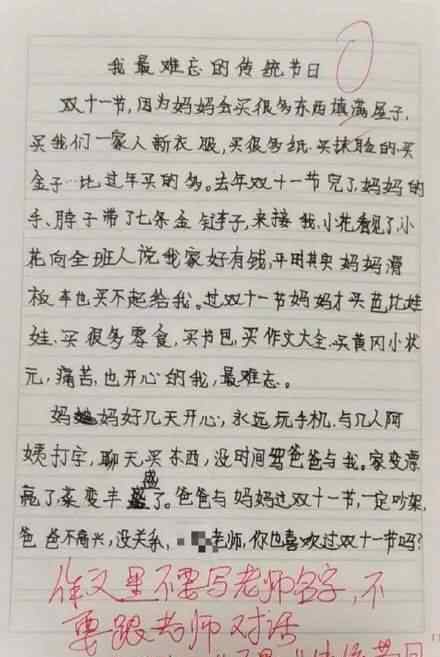 我最难忘的传统节日
双十一节,因为妈妈会买很多东西填满屋子,
买我们一家人新衣服,买很多纸、买抹脸的、买
金子…比过年买的多。去年双十一节完了,妈妈的
手、脖子带了七条金链子,来接我,小花看见了,小
花向全班人说我家好有钱,平时其实妈妈滑
板车也买不起给我。过双十一节妈妈才买芭比娃
娃、买很多零食,买书包,买作文大全、买黄冈小状
元,痛苦、也开心的我,最难忘。
妈妈好几天开心,永远玩手机,与几人阿
姨打字,聊天,买东西,没时间骂爸爸与我。家变漂
亮了,菜变丰盛了。爸爸与妈妈过双十一节,一定吵架,
爸爸不高兴,没关系,老师,你也喜欢过双十一节吗?
作文里不要写老师名字,不
要跟老师对话